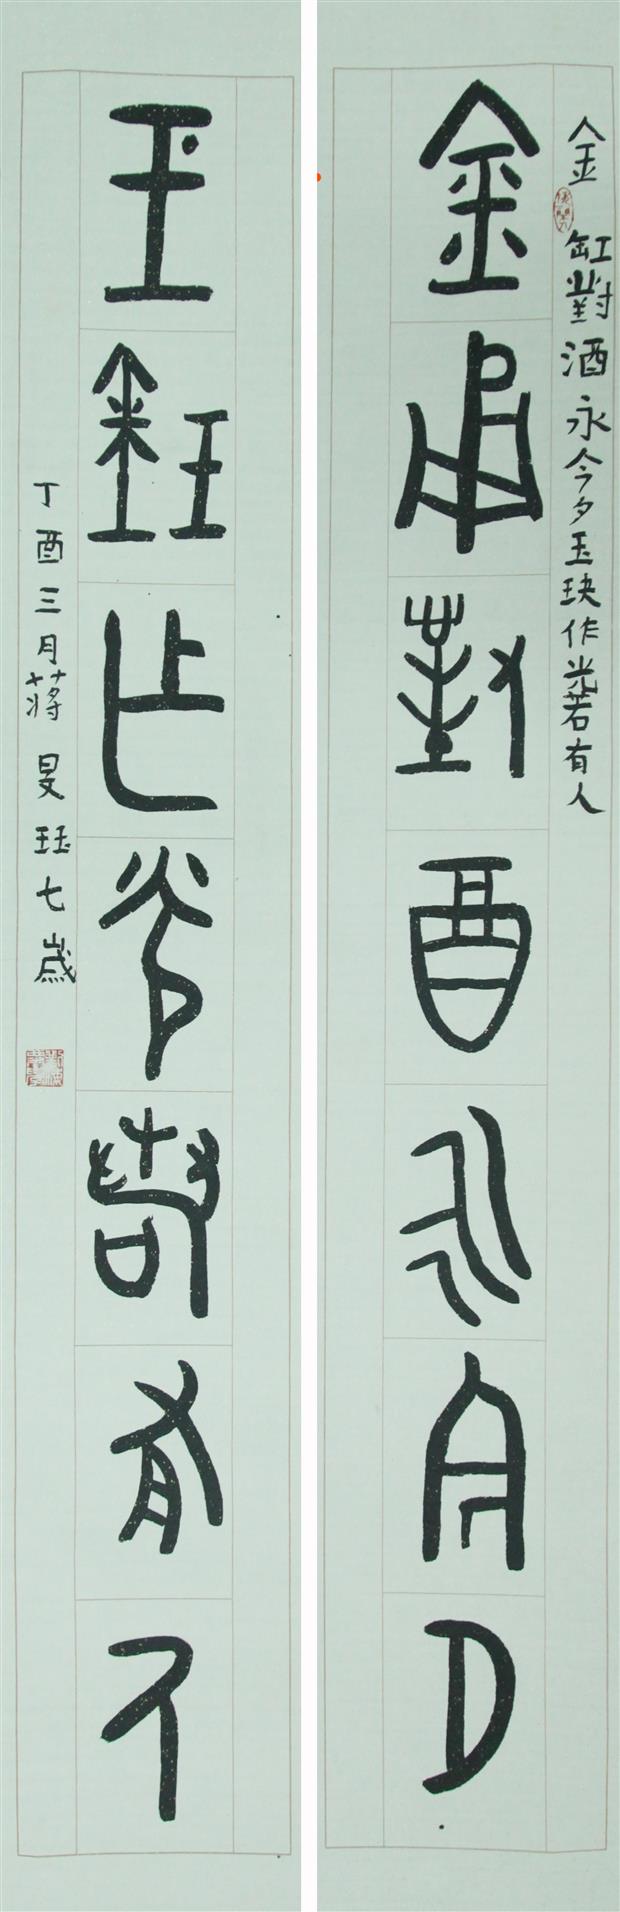 金缸對酒永今夕玉玦作光若有人
金甬對酉永今夕
玉鈺乍光若有人
丁酉三月蔣旻珏七歲